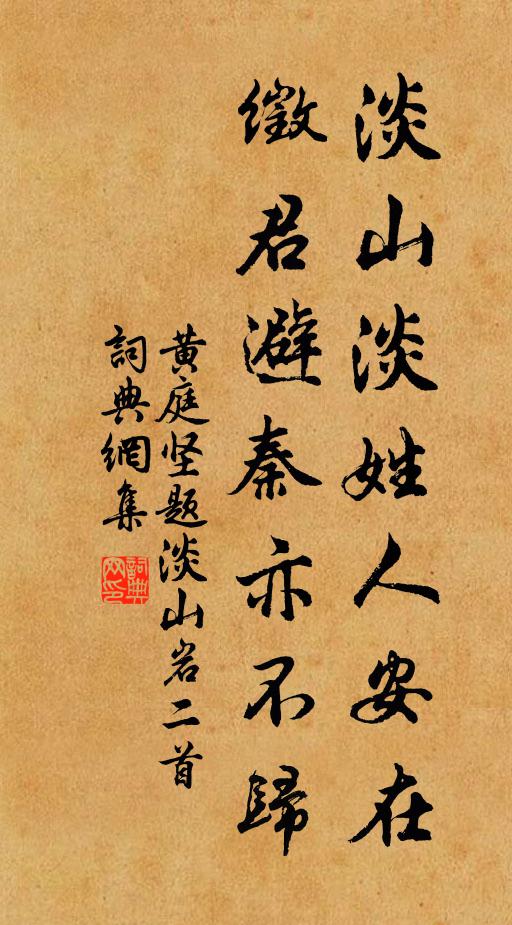 淡山淡姓人安在
徵君避秦亦不歸
黄庭坚题淡山岩二首
詞典網集
詞典网印